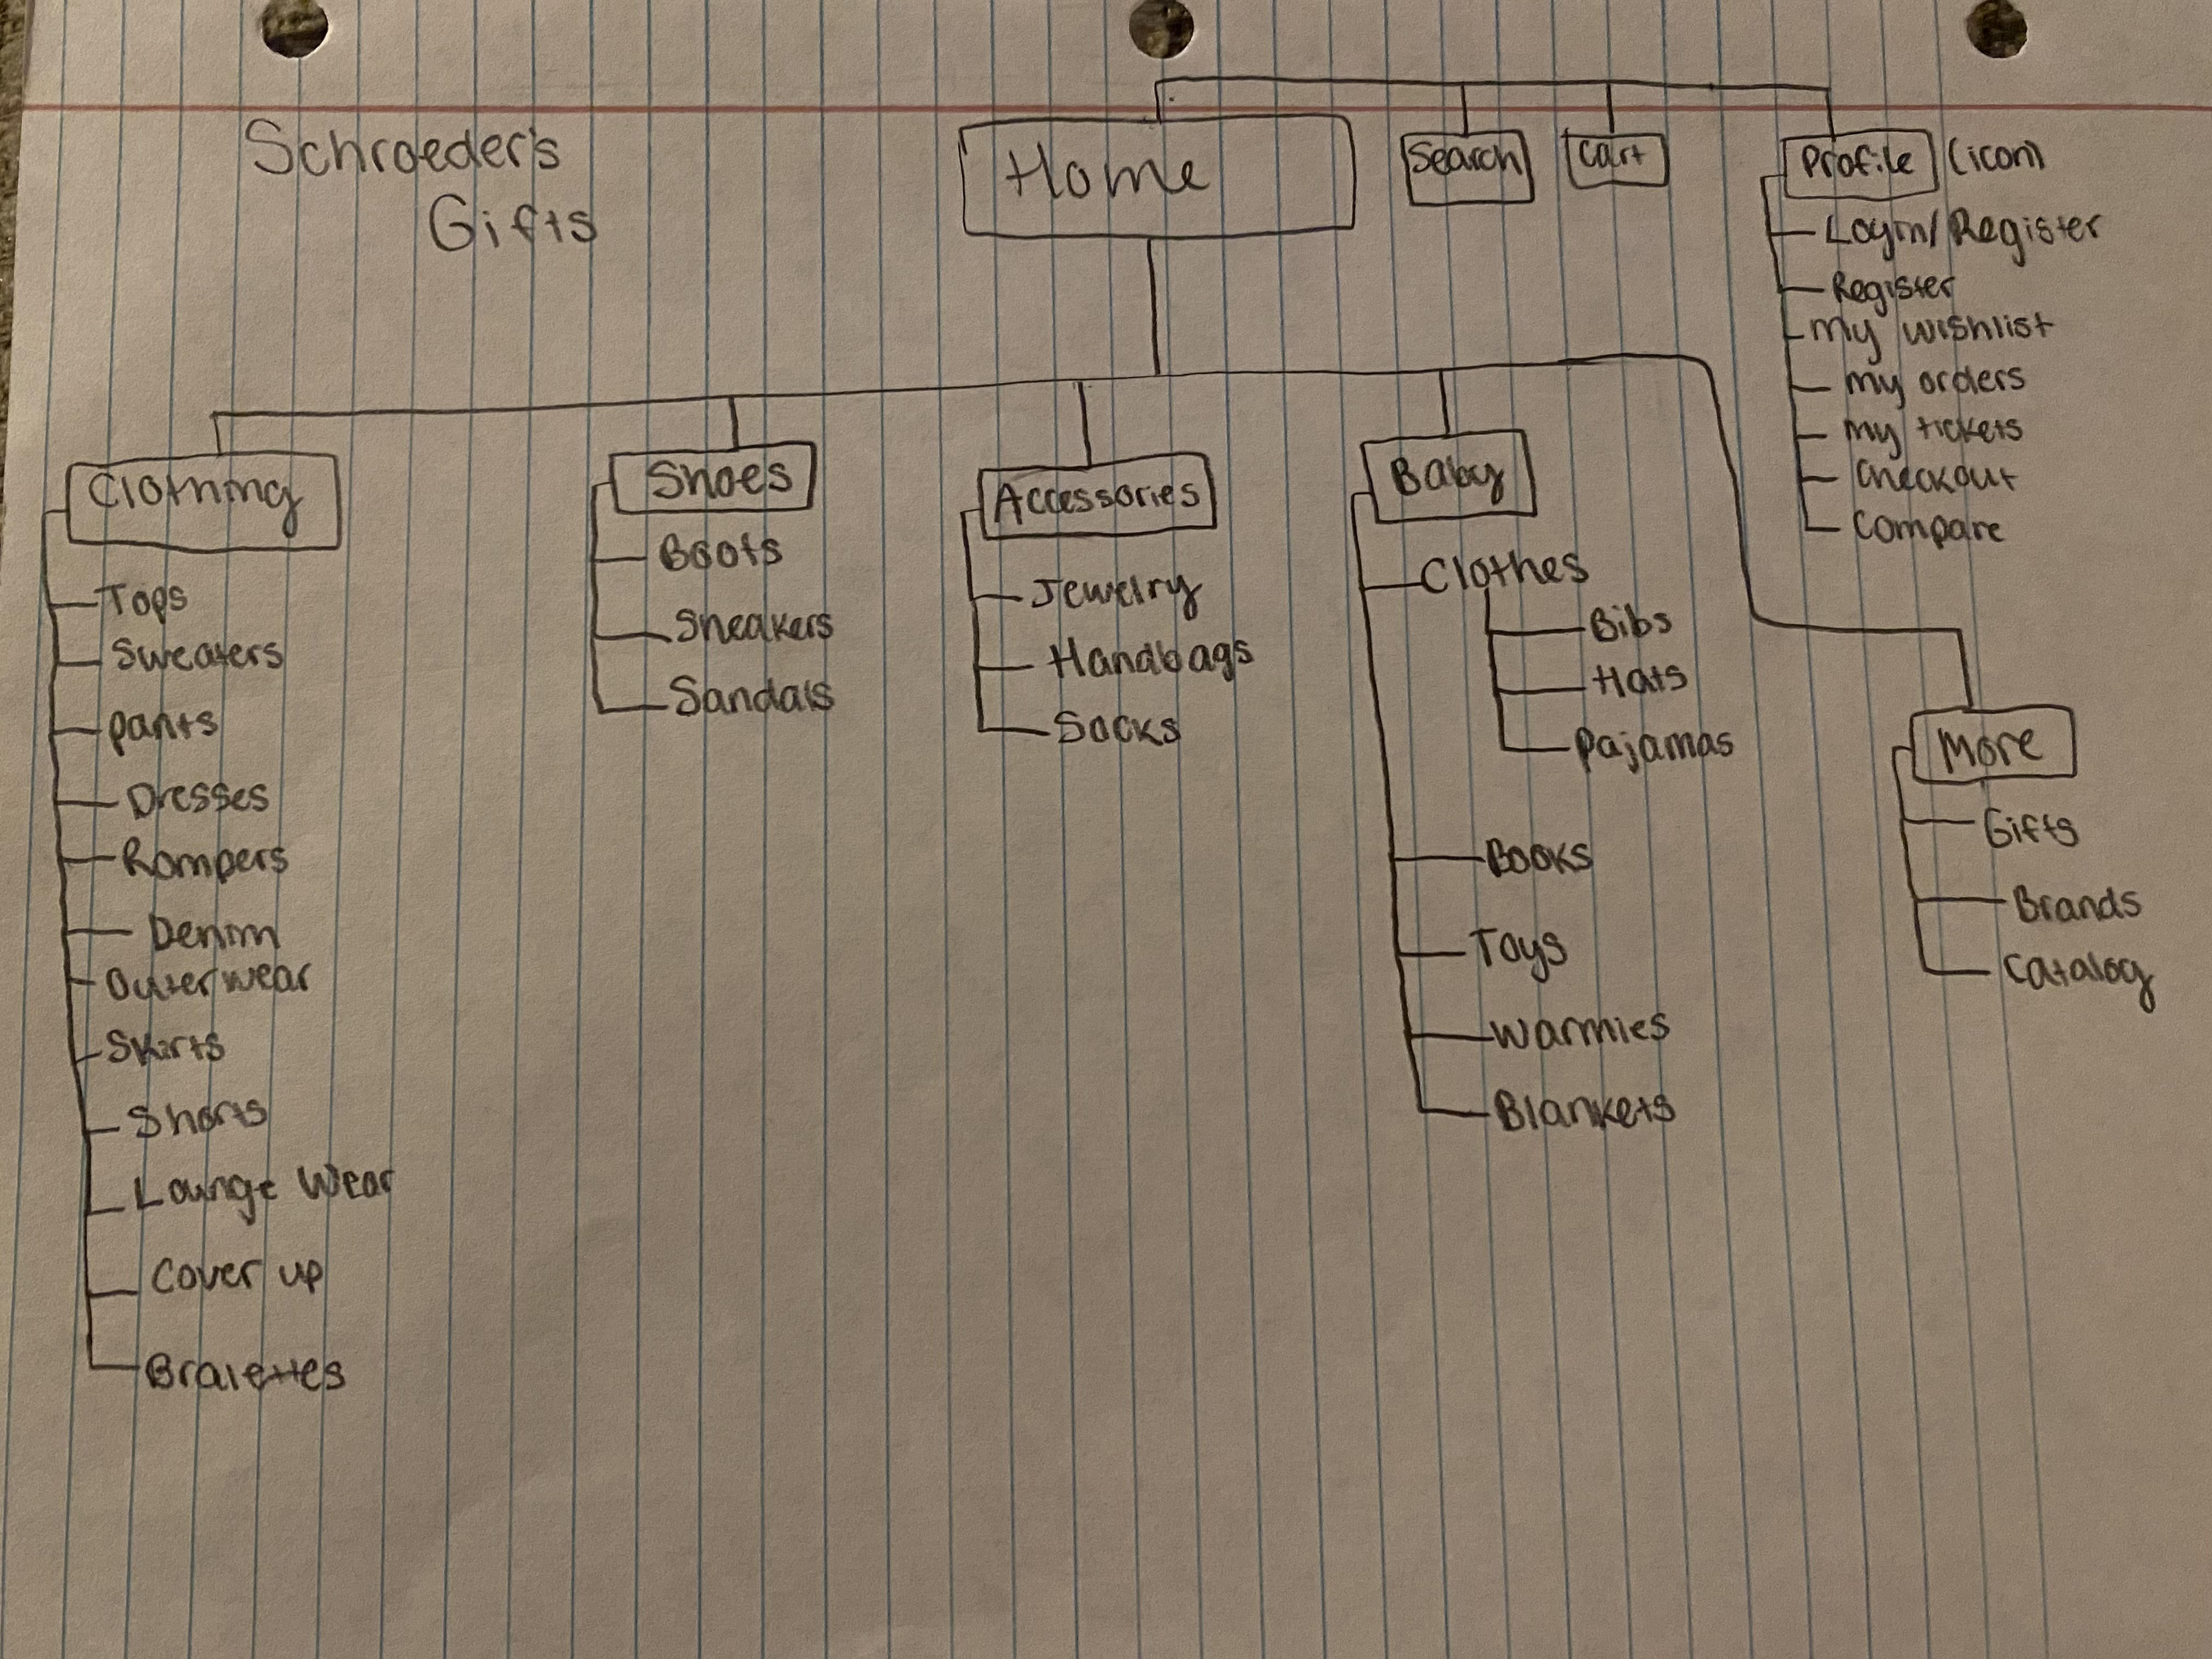 Schroeder's
Gifts
Home
Search
Cart
Profile (icon)
Login/Register
Register
my wishlist
my orders
my tickets
Checkout
Compare
Clothing
Tops
Sweaters
pants
Dresses
Rompers
Denim
Outerwear
Skirts
Shorts
Lounge Wear
Cover up
Bralettes
Shoes
Boots
Sneakers
Sandals
Accessories
Jewelry
Handbags
Socks
Baby
Clothes
Bibs
Hats
Pajamas
Books
Toys
Warmies
Blankets
More
Gifts
Brands
Catalog